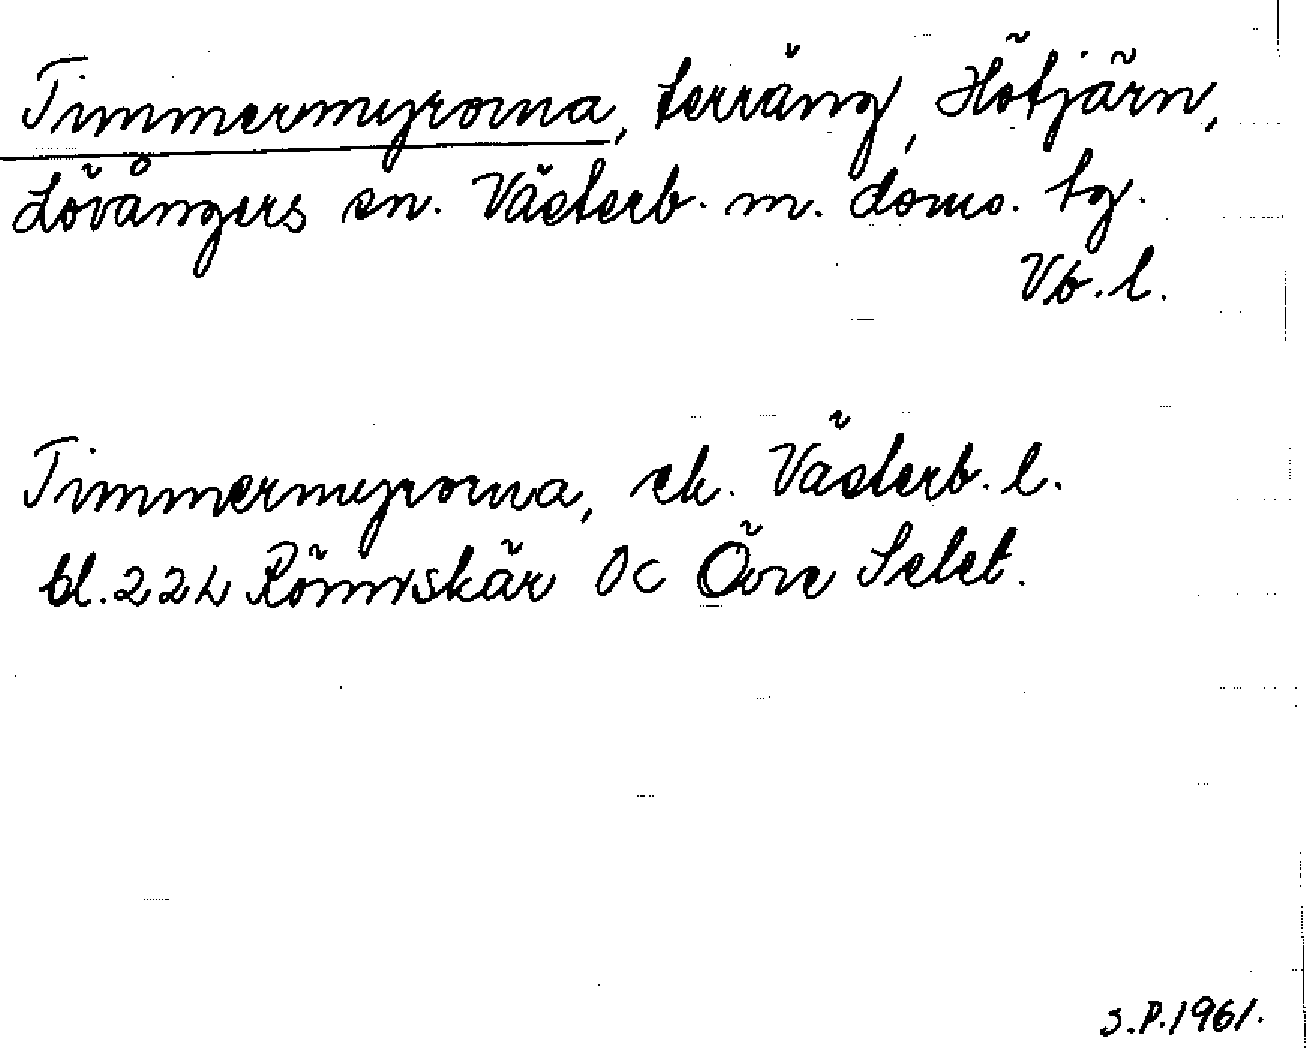 Timmermyrorna, terräng, Hötjärn,
Lövångers sn. Västerb. m. doms. tg.
Vb. l.
Timmermyrorna, ek. Västerb. l.
bl. 22 L Rönnskär Oc Övre Selet.
S.P. 1961.